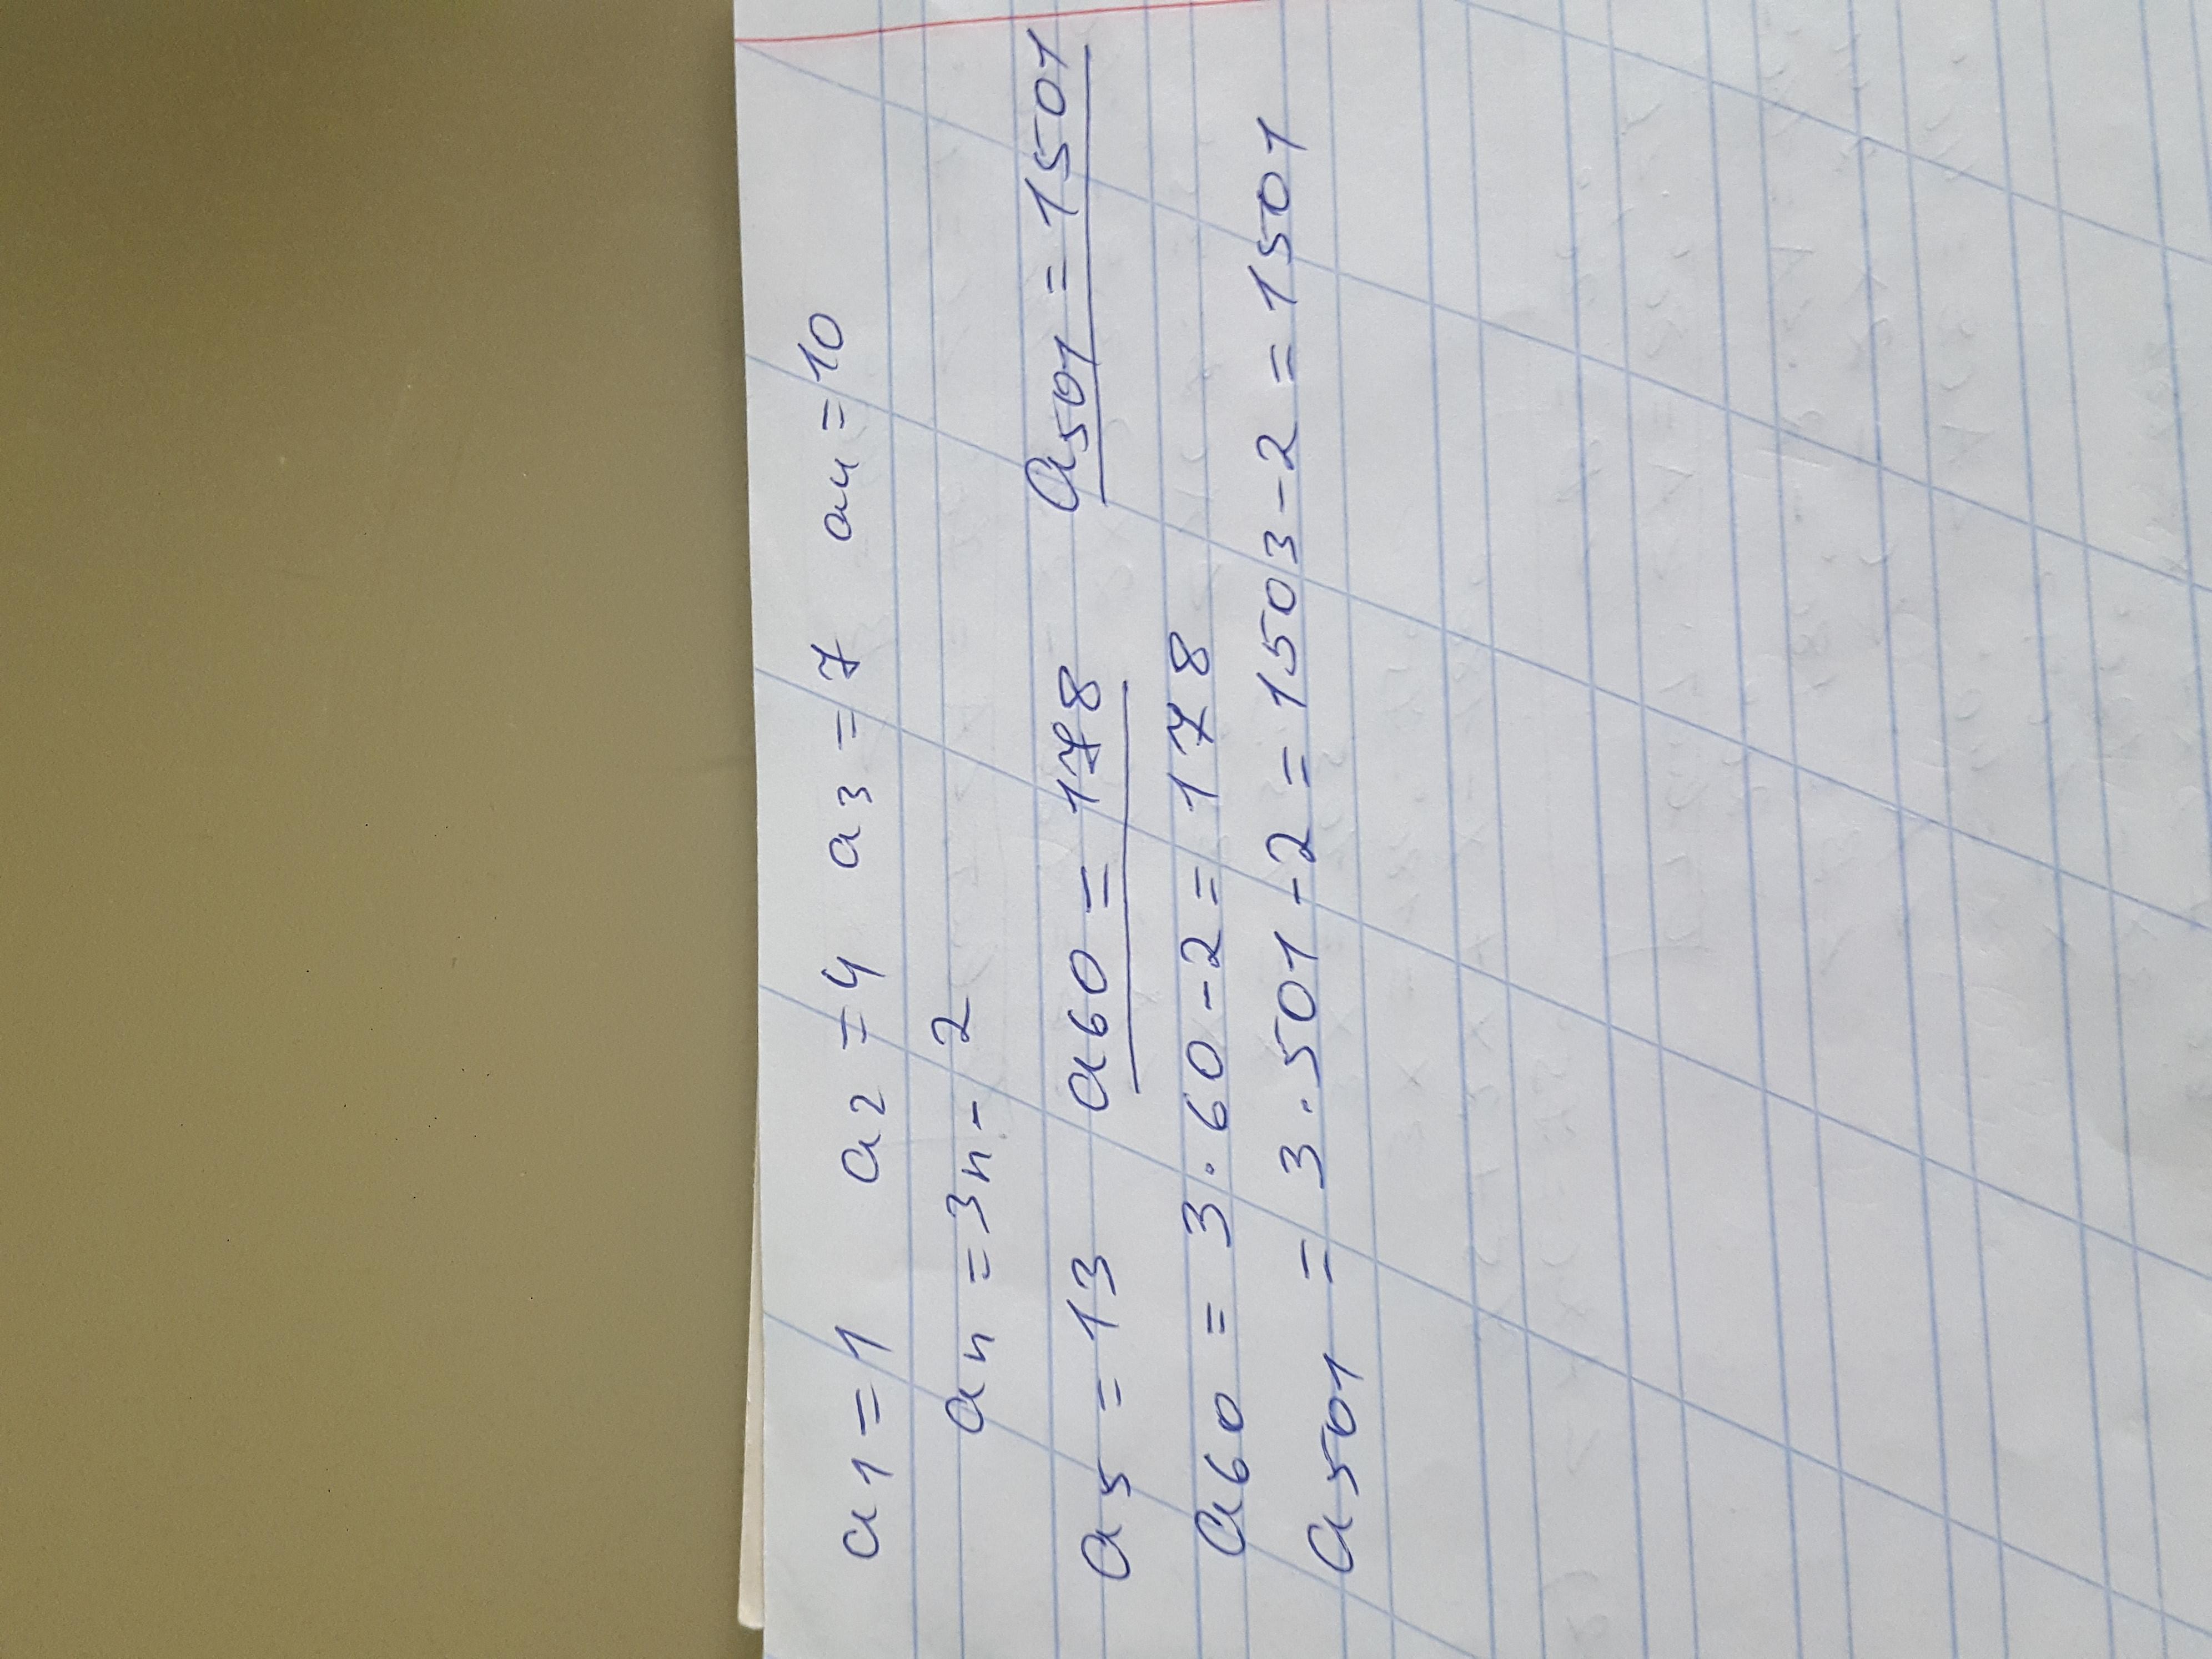 a1 = 1 a2 = 4 a3 = 7 a4 = 10
an = 3n - 2
a5 = 13 a60 = 178 a501 = 1501
a60 = 3 · 60 - 2 = 178
a501 = 3 · 501 - 2 = 1503 - 2 = 1501